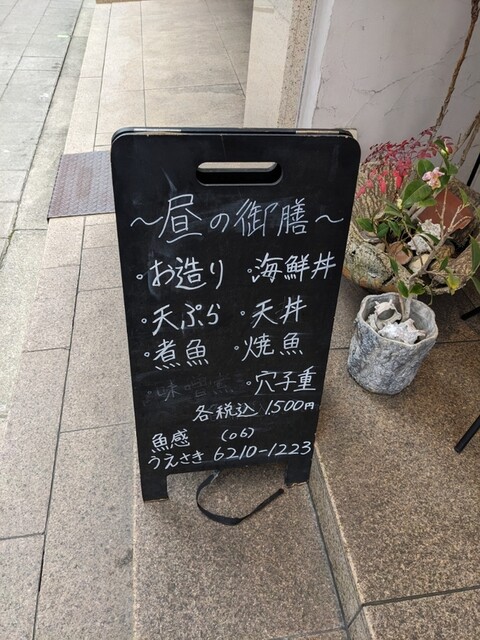 ～昼の御膳～
・お造り ・海鮮丼
・天ぷら ・天丼
・煮魚 ・焼魚
・穴子重
各税込 1500円
魚感 (06)
うえさき 6210-1223